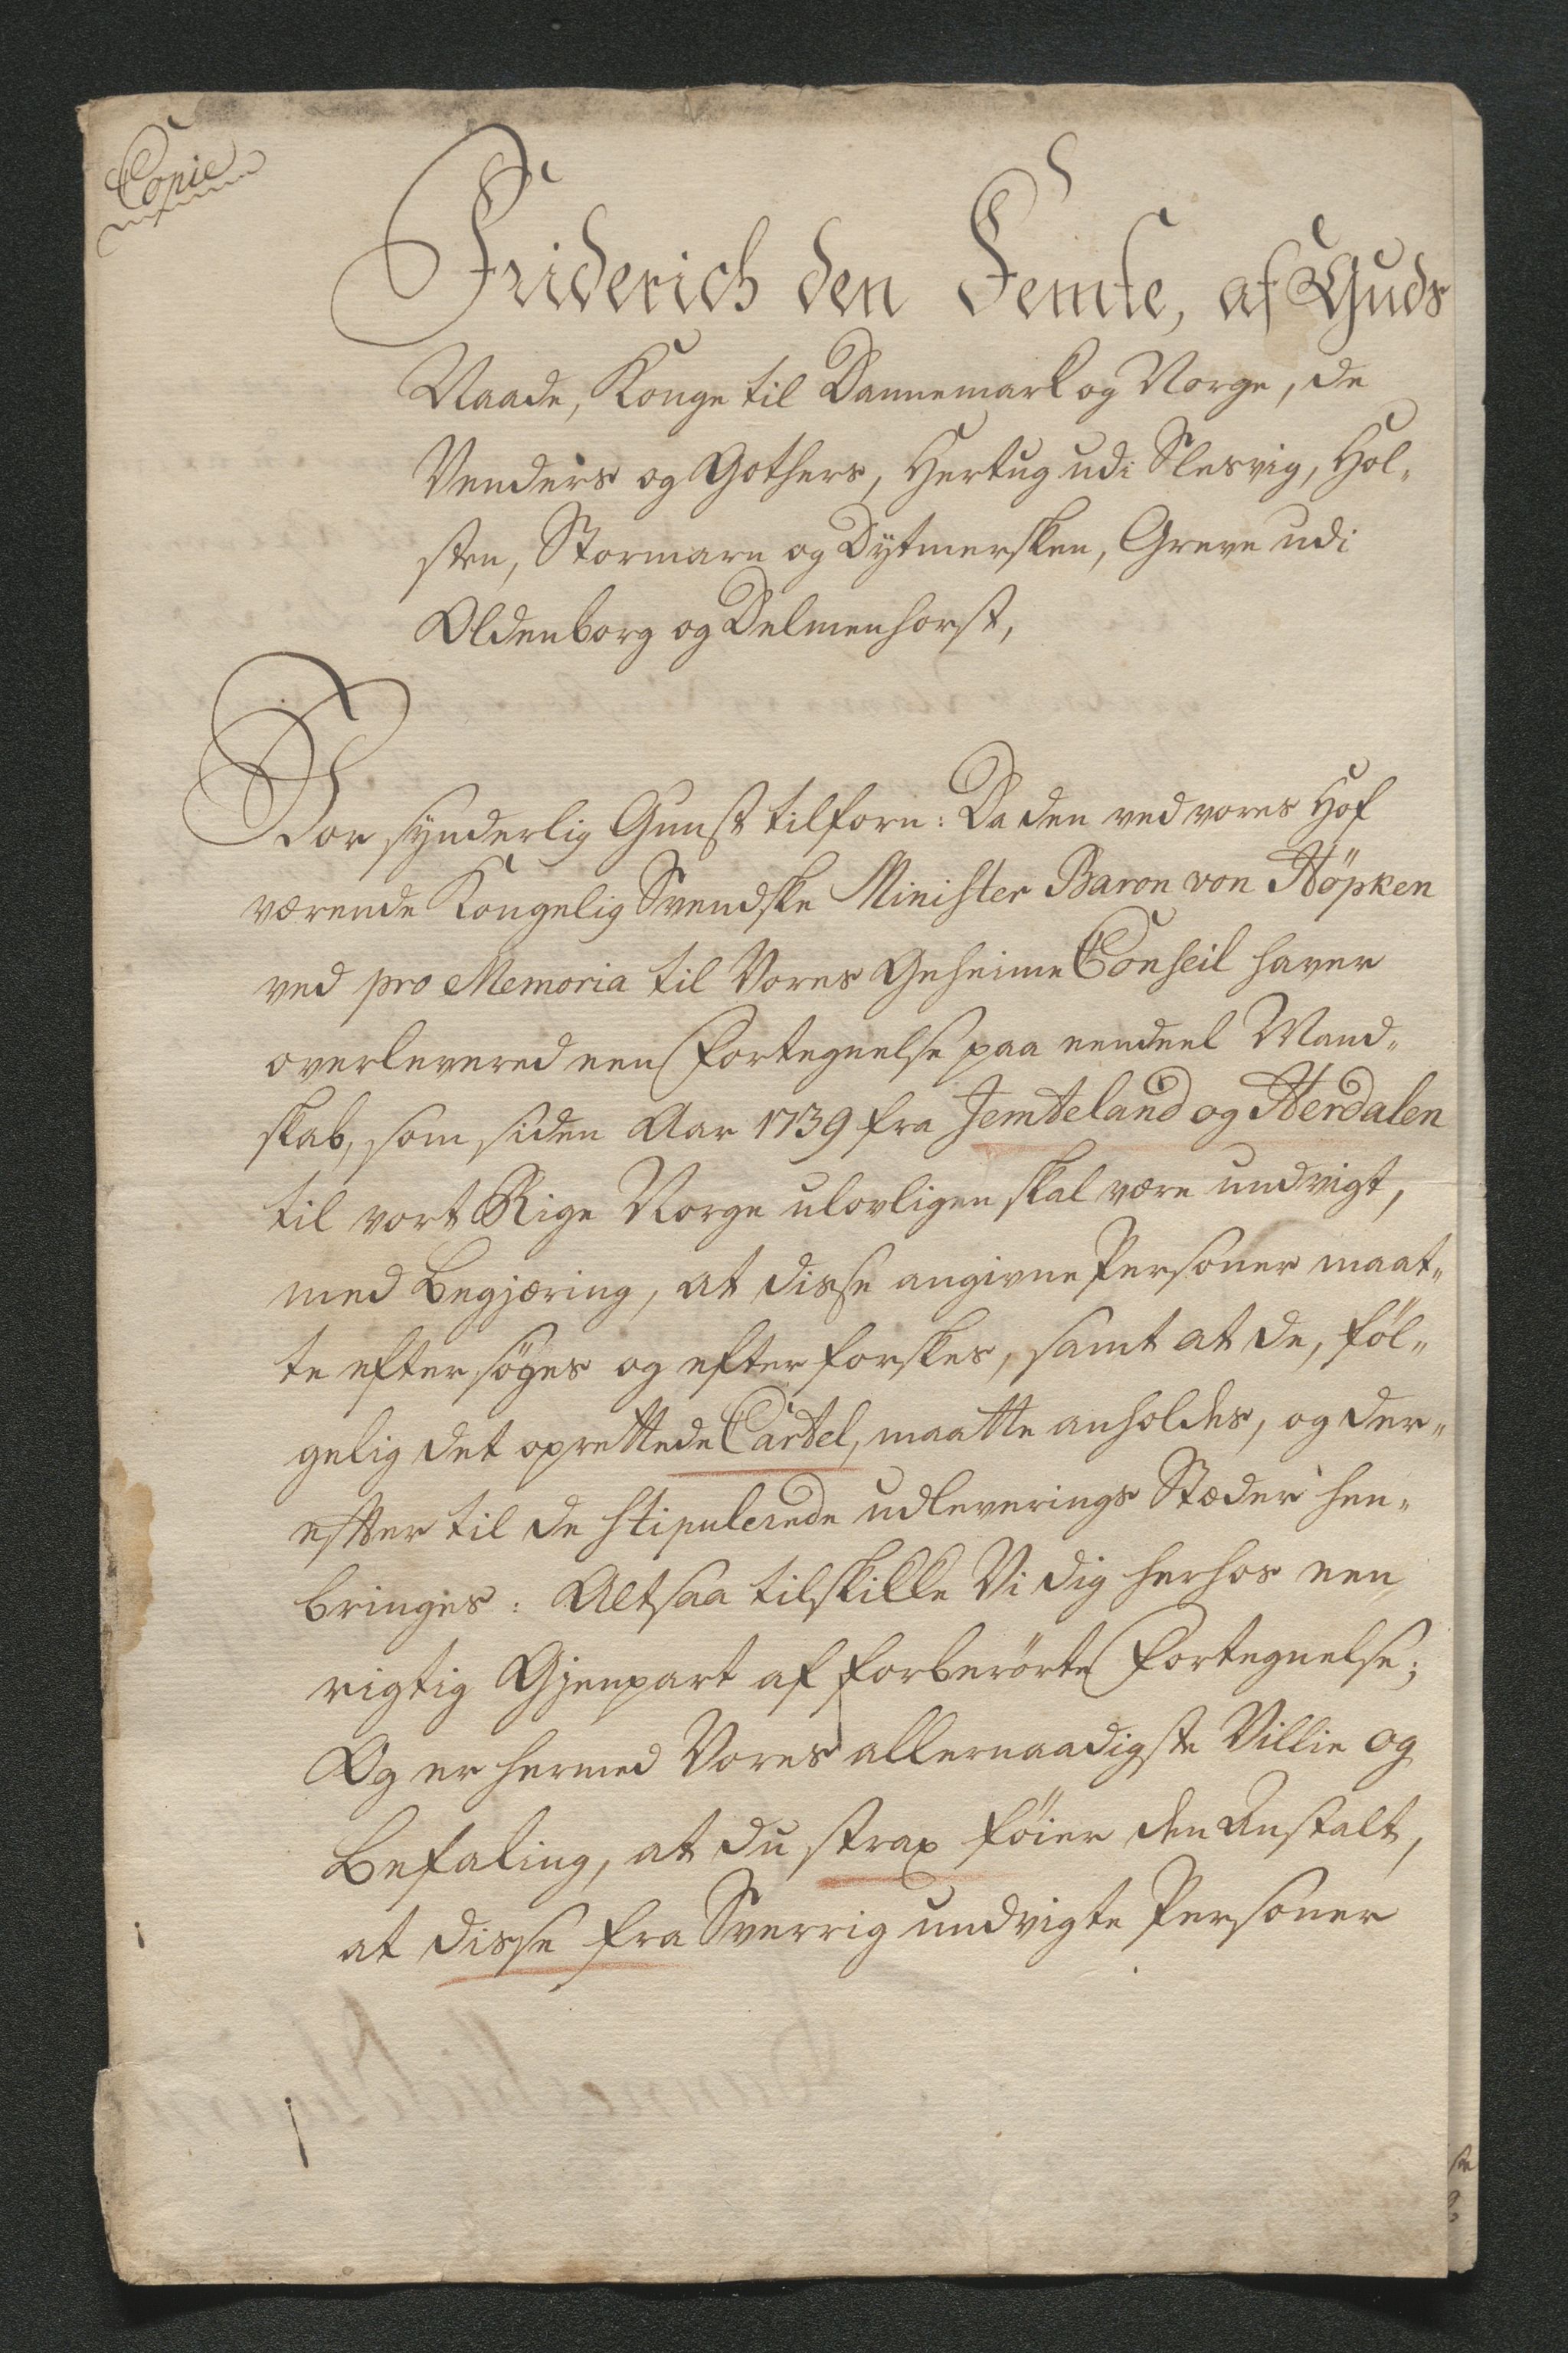 Copie
Friderich den Femte, af Guds
Naade, Konge til Dannemark og Norge, de
Venders og Gothers, Hertug udi Slesvig, Hol-
sten, Stormarn og Dytmersken, Greve udi
Oldenborg og Delmenhorst,
Vor synderlig Gunst tilforn: Da den ved vores Hof
værende Kongelig Svendske Minister Baron von Höpken
ved pro Memoria til Vores Geheime Conseil haver
overlevered een Fortegnelse paa eendeel Mand-
skab, som siden Aar 1739 fra Jemteland og Herdalen
til vort Rige Norge ulovligen skal være undvigt,
med Begjæring, at disse angivne Personer maat-
te eftersöges og efterforskes, samt at de, föl-
gelig det oprettede Cartel, maatte anholdes, og der-
effter til de stipulerede udleverings Stæder hen-
bringes: Altsaa tilskikke Vi dig herhos een
rigtig Gjenpart af forberörte Fortegnelse;
Og er hermed Vores allernaadigste Villie og
Befaling, at du strax föier den Anstalt,
at disse fra Sverrig undvigte Personer